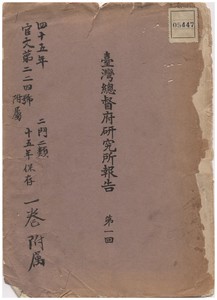 臺灣總督府研究所報告 第一回
四十五年
官文第二二四號
附屬
二門二類
十五年保存
一卷附屬
05447